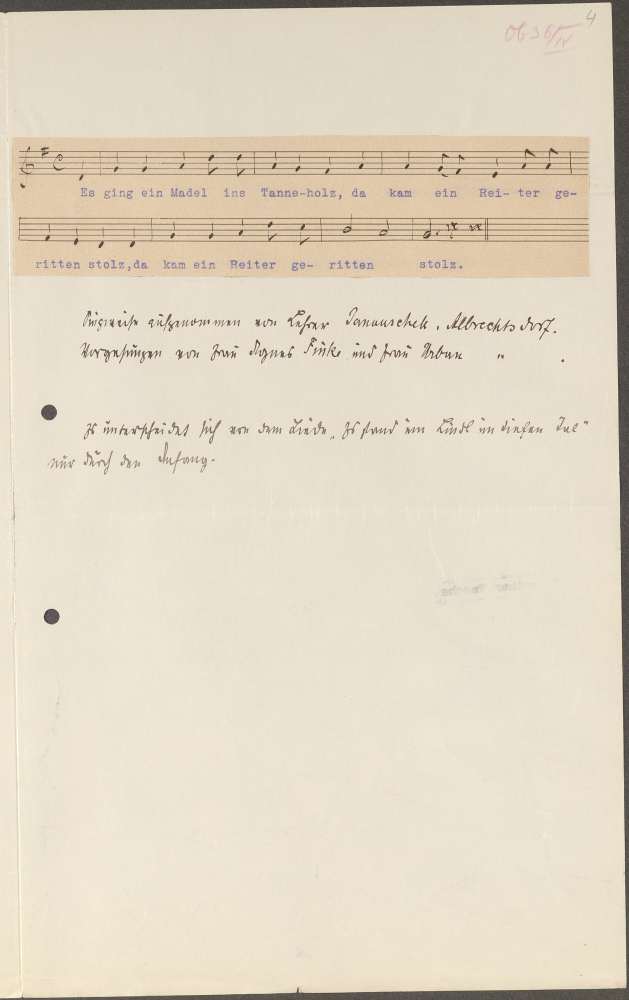 4
Ob 36/IV
Es ging ein Madel ins Tanne-holz, da kam ein Rei- ter ge-
ritten stolz,da kam ein Reiter ge- ritten stolz.
Singweise aufgenommen von Lehrer Janouschek, Albrechtsdorf.
Vorgesungen von Frau Agnes Finke und Frau Urban "
Es unterscheidet sich von dem Liede „Es stand ein Lindl in diesen Tal"
nur durch den Anfang.